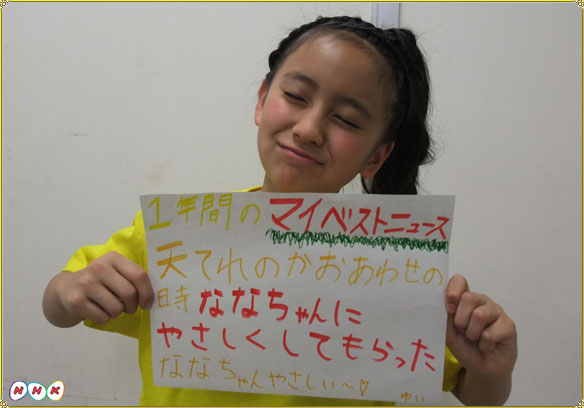 1年間のマイベストニュース
天てれのかおあわせの
時ななちゃんに
やさしくしてもらった
ななちゃんやさしい〜♡
ゆい
NHK